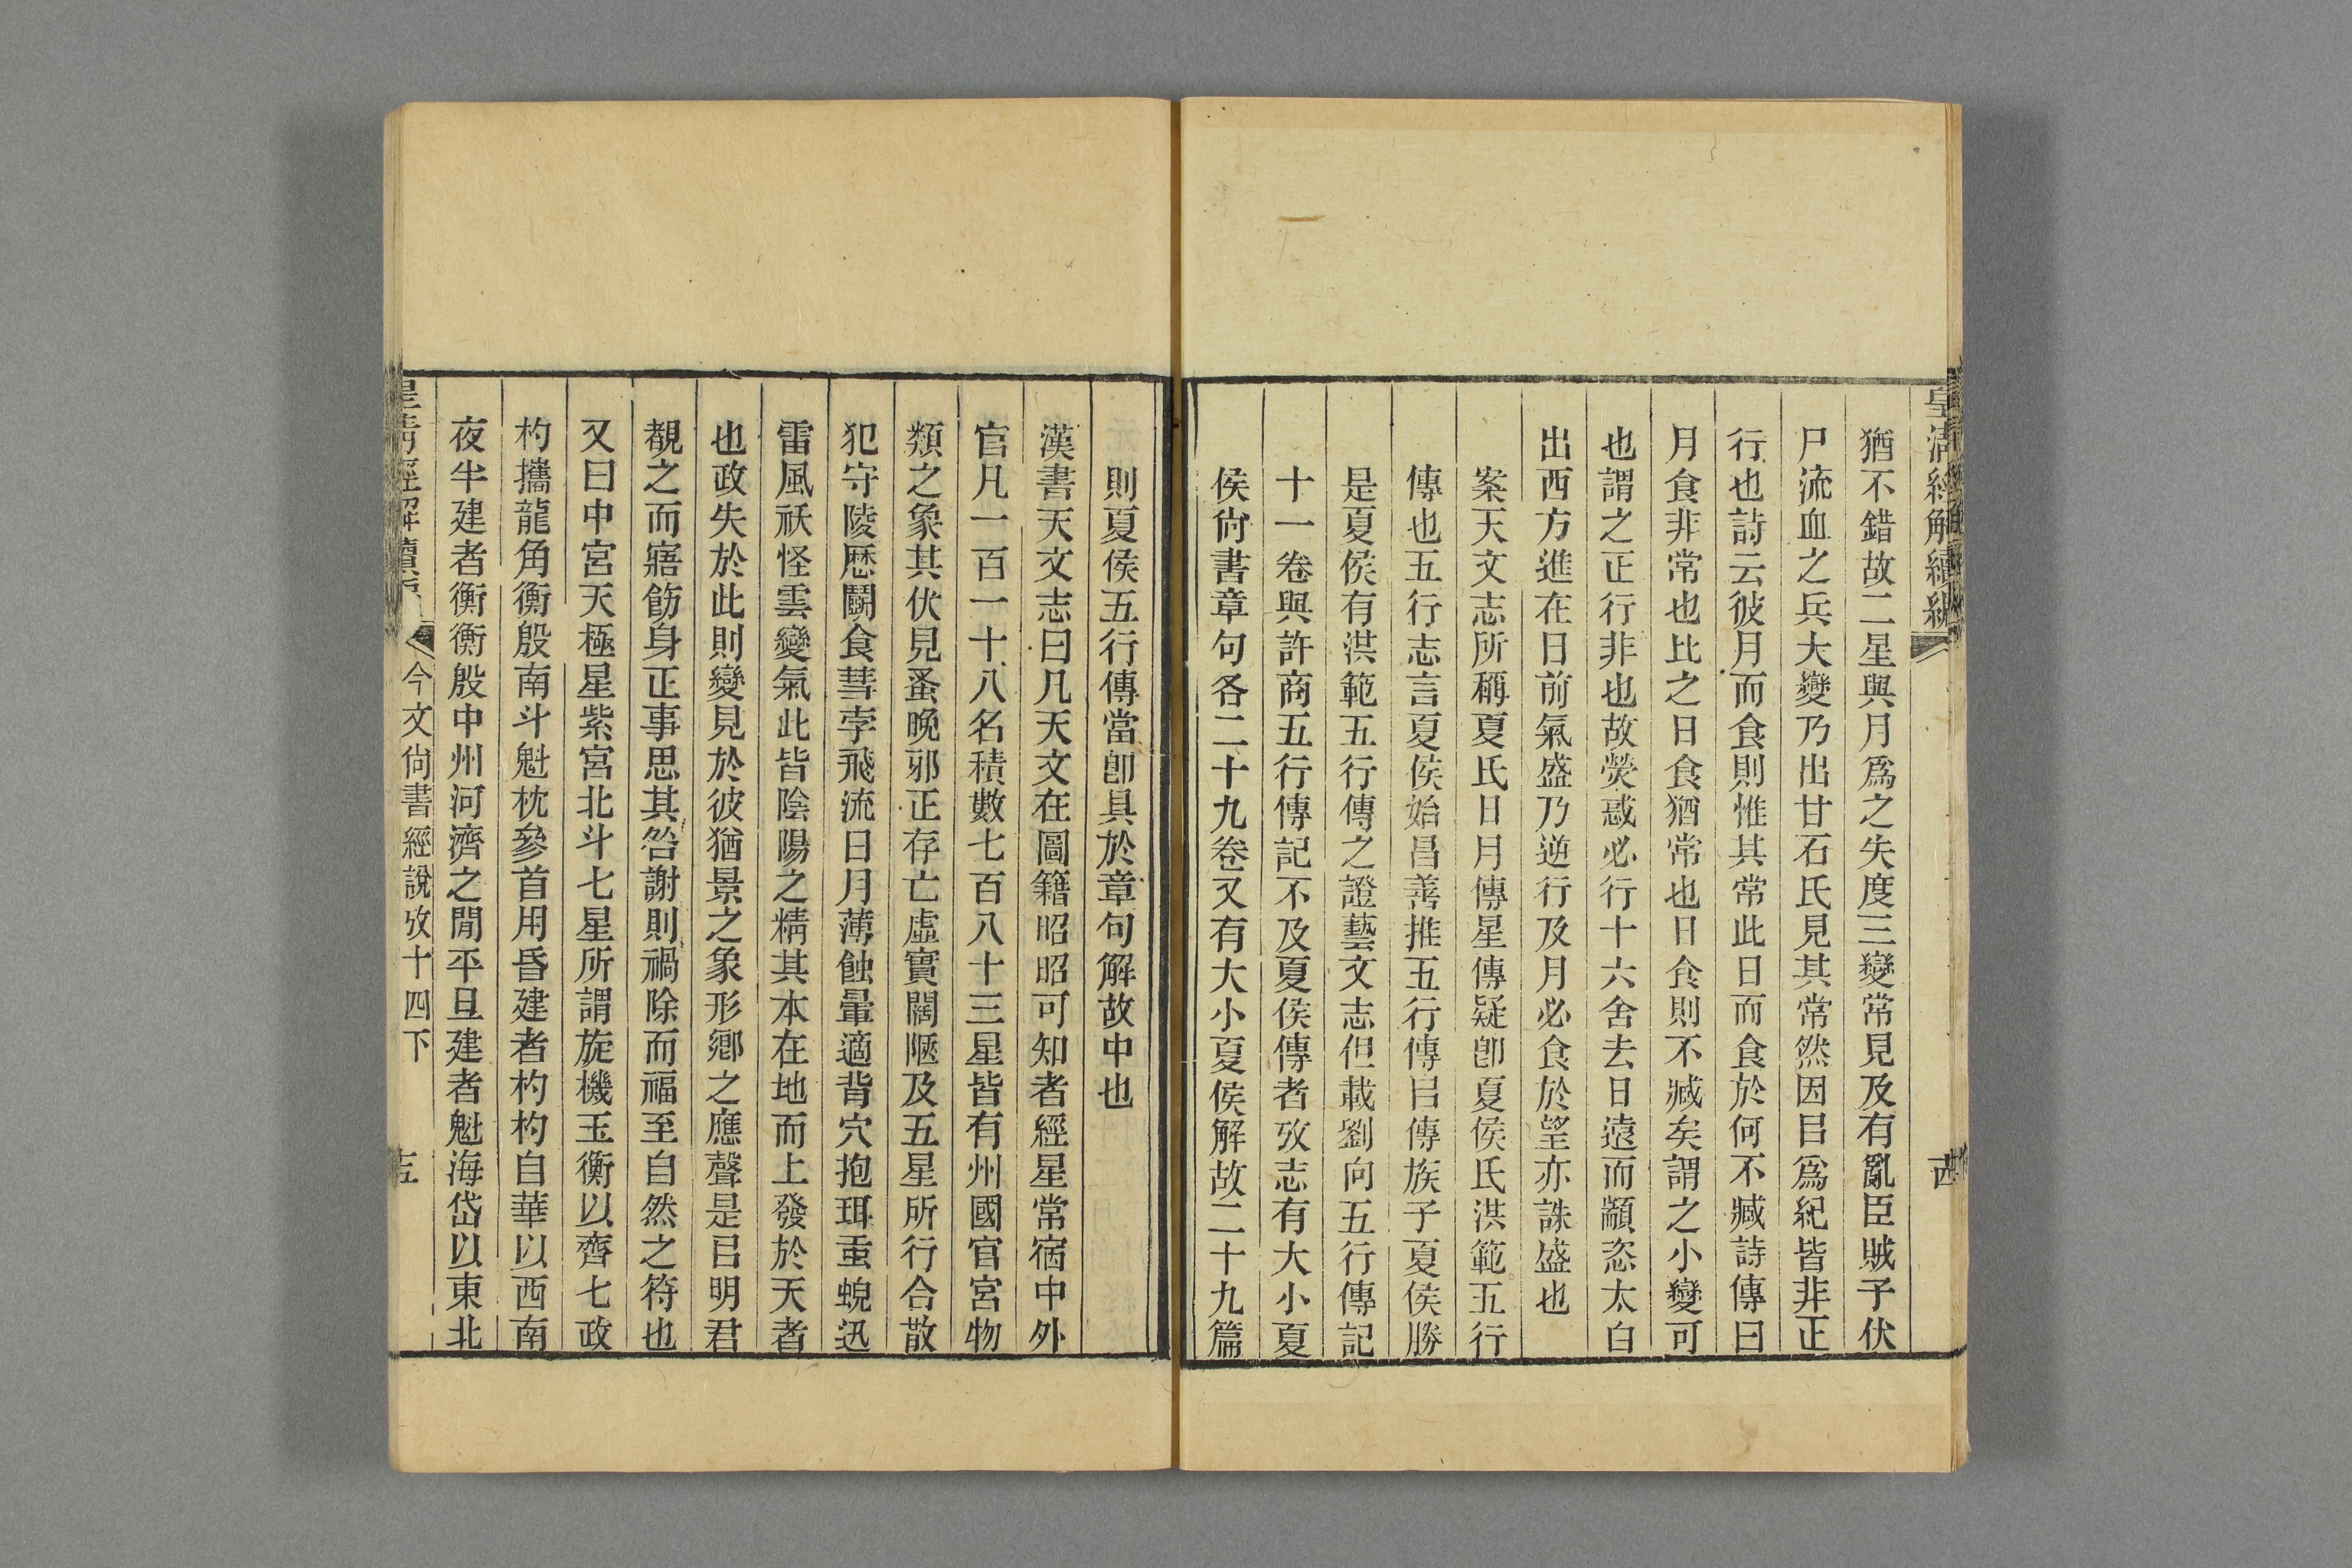 皇清經解續編
猶不錯故二星與月爲之失度三變常見及有亂臣賊子伏
尸流血之兵大變乃出甘石氏見其常然因㠯爲紀皆非正
行也詩云彼月而食則惟其常此日而食於何不臧詩傳曰
月食非常也比之日食猶常也日食則不臧矣謂之小變可
也謂之正行非也故熒惑必行十六舍去日遠而顓恣太白
出西方進在日前氣盛乃逆行及月必食於望亦誅盛也
案天文志所稱夏氏日月傳星傳疑卽夏侯氏洪範五行
傳也五行志言夏侯始昌善推五行傳㠯傳族子夏侯勝
是夏侯有洪範五行傳之證藝文志但載劉向五行傳記
十一卷與許商五行傳記不及夏侯傳者攷志有大小夏
侯尙書章句各二十九卷又有大小夏侯解故二十九篇
則夏侯五行傳當卽具於章句解故中也
漢書天文志曰凡天文在圖籍昭昭可知者經星常宿中外
官凡一百一十八名積數七百八十三星皆有州國官宮物
類之象其伏見蚤晚邪正存亡虛實闊陿及五星所行合散
犯守陵歷鬭食彗孛飛流日月薄蝕暈適背穴抱珥䖝蜺迅
雷風祅怪雲變氣此皆陰陽之精其本在地而上發於天者
也政失於此則變見於彼猶景之象形鄉之應聲是㠯明君
覩之而寤飭身正事思其咎謝則禍除而福至自然之符也
又曰中宮天極星紫宮北斗七星所謂旋機玉衡以齊七政
杓攜龍角衡殷南斗魁枕參首用昏建者杓杓自華以西南
夜半建者衡衡殷中州河濟之閒平旦建者魁海岱以東北
皇清經解續編
今文尙書經說攷十四下